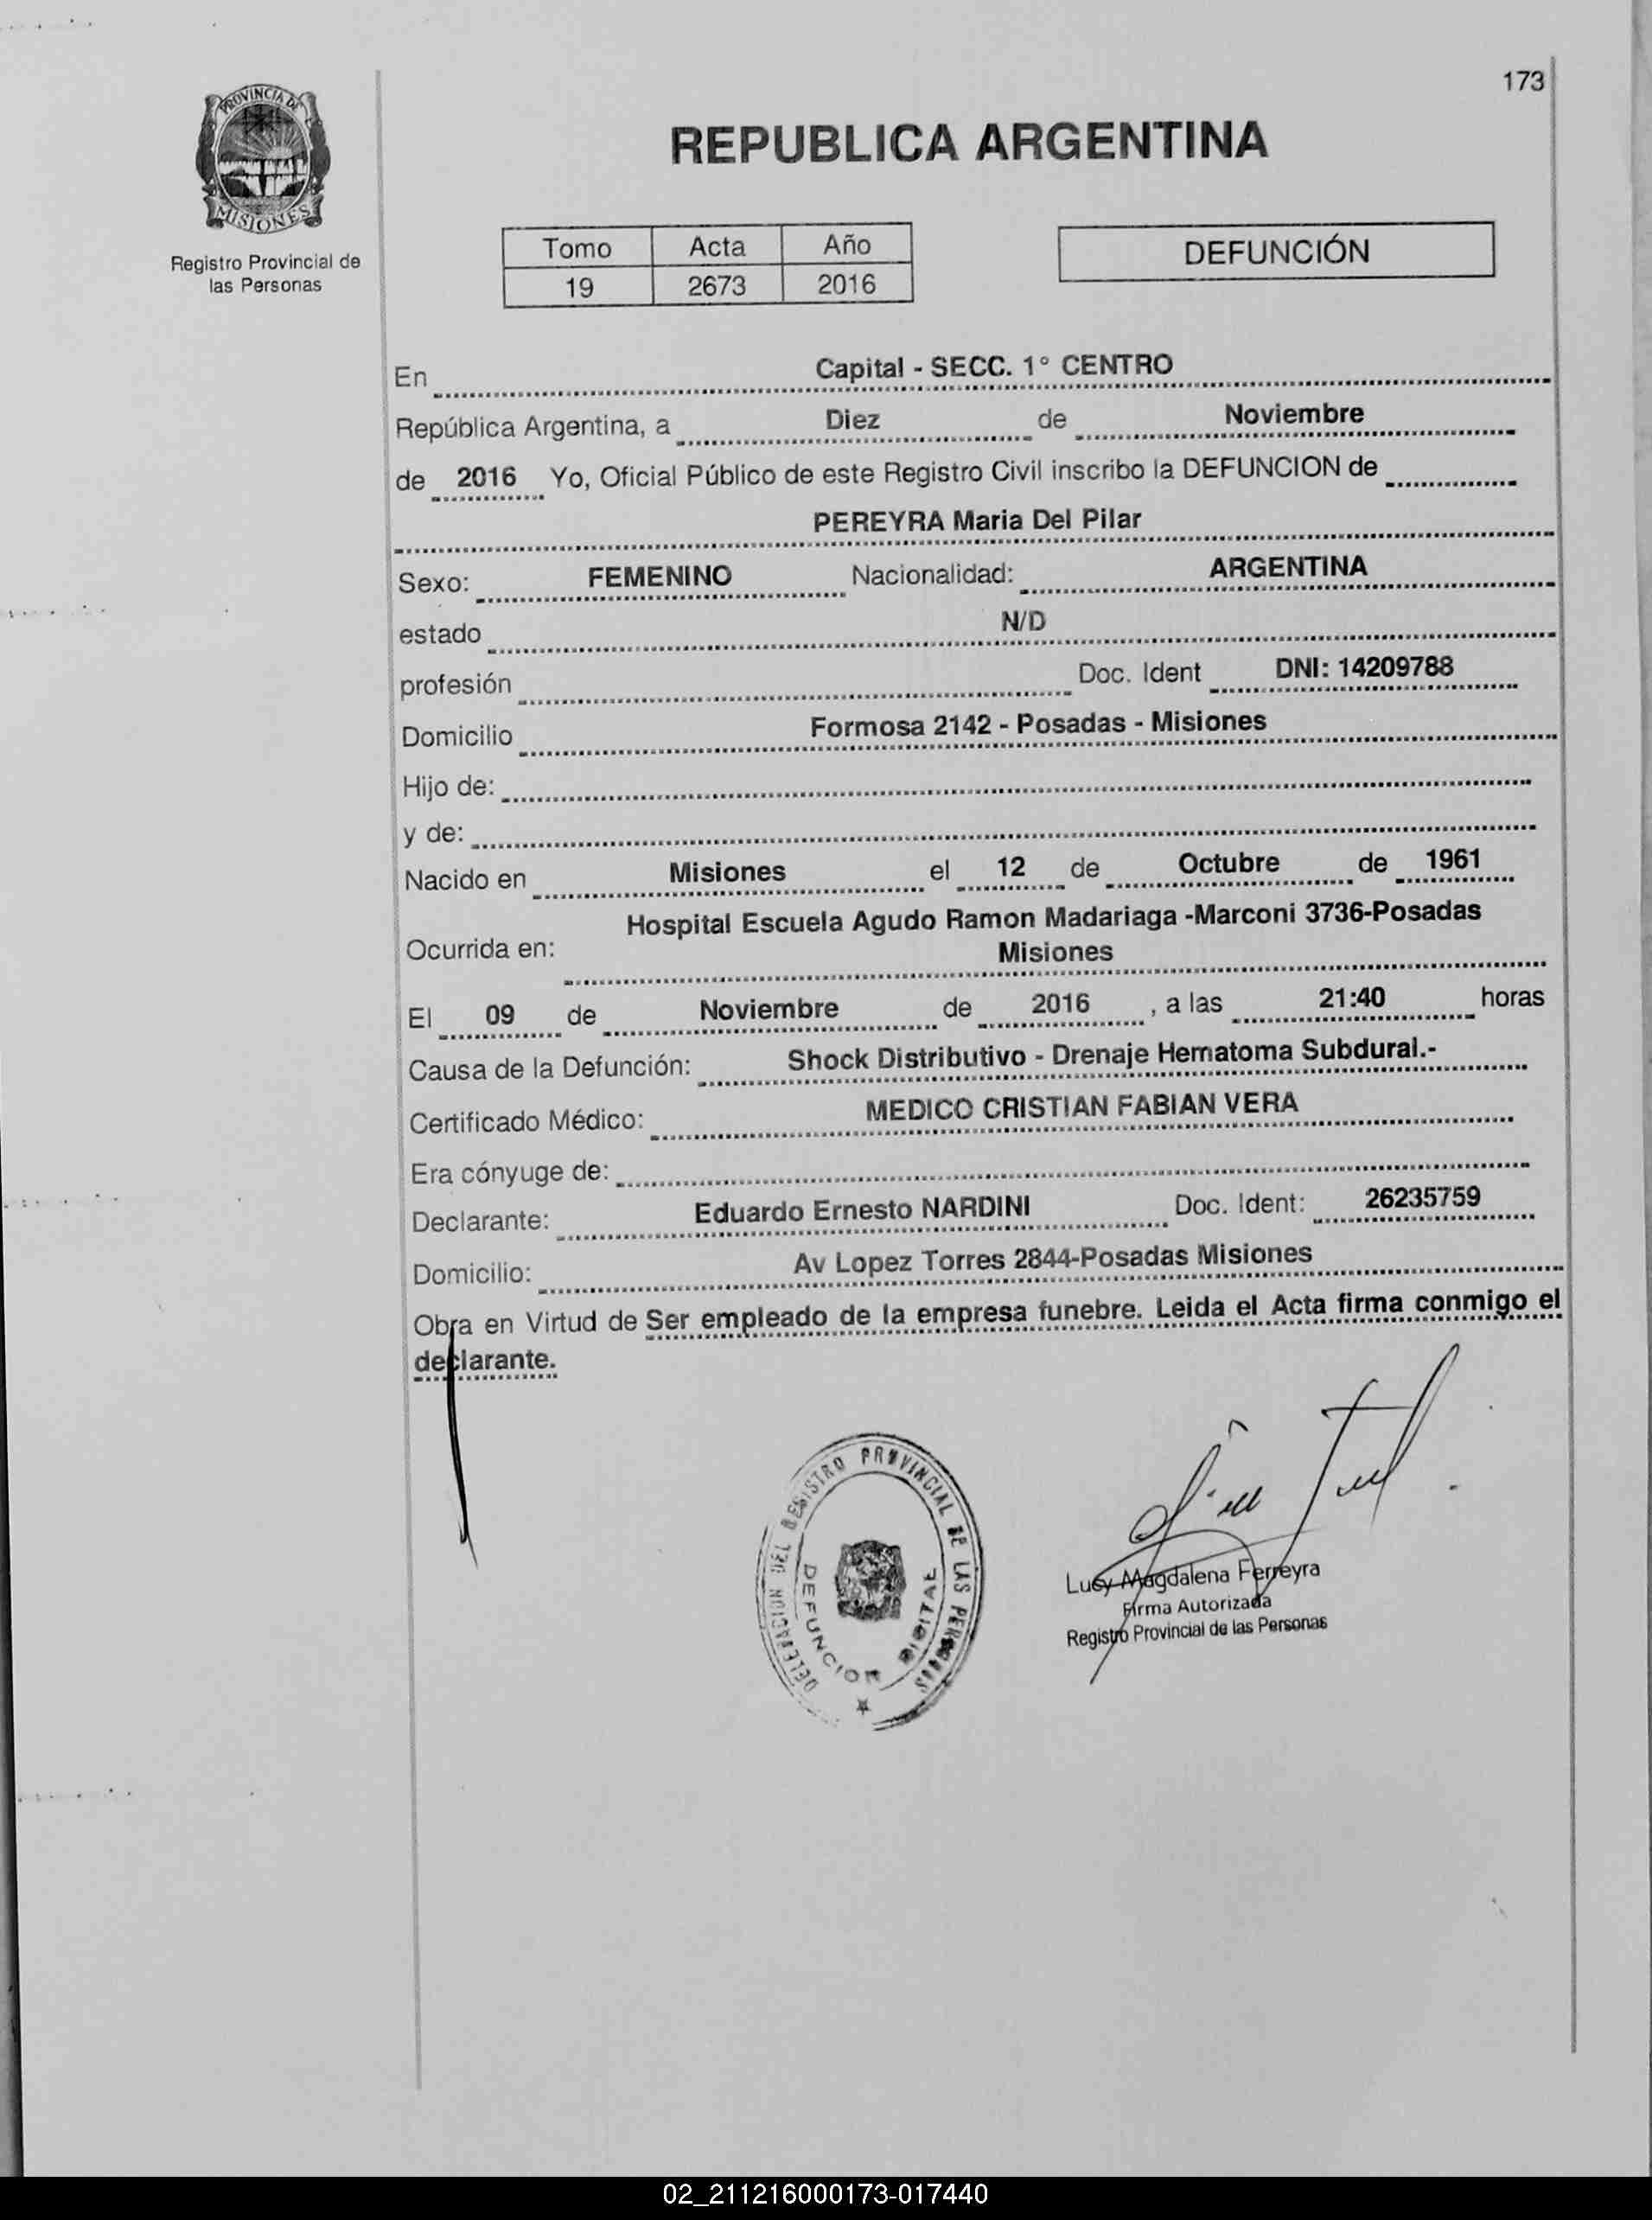 173
PROVINCIA DE
MISIONES
Registro Provincial de
las Personas
REPUBLICA ARGENTINA
Tomo Acta Año
19 2673 2016
DEFUNCIÓN
En Capital - SECC. 1° CENTRO
República Argentina, a Diez de Noviembre
de 2016 Yo, Oficial Público de este Registro Civil inscribo la DEFUNCION de
PEREYRA Maria Del Pilar
Sexo: FEMENINO Nacionalidad: ARGENTINA
estado N/D
profesión Doc. Ident DNI: 14209788
Domicilio Formosa 2142 - Posadas - Misiones
Hijo de:
y de:
Nacido en Misiones el 12 de Octubre de 1961
Hospital Escuela Agudo Ramon Madariaga -Marconi 3736-Posadas
Ocurrida en: Misiones
El 09 de Noviembre de 2016 , a las 21:40 horas
Causa de la Defunción: Shock Distributivo - Drenaje Hematoma Subdural.-
Certificado Médico: MEDICO CRISTIAN FABIAN VERA
Era cónyuge de:
Declarante: Eduardo Ernesto NARDINI Doc. Ident: 26235759
Domicilio: Av Lopez Torres 2844-Posadas Misiones
Obra en Virtud de Ser empleado de la empresa funebre. Leida el Acta firma conmigo el
declarante.
DELEGACION DEL REGISTRO PROVINCIAL DE LAS PERSONAS
DEFUNCION DIGITAL
Lucy Magdalena Ferreyra
Firma Autorizada
Registro Provincial de las Personas
02_211216000173-017440